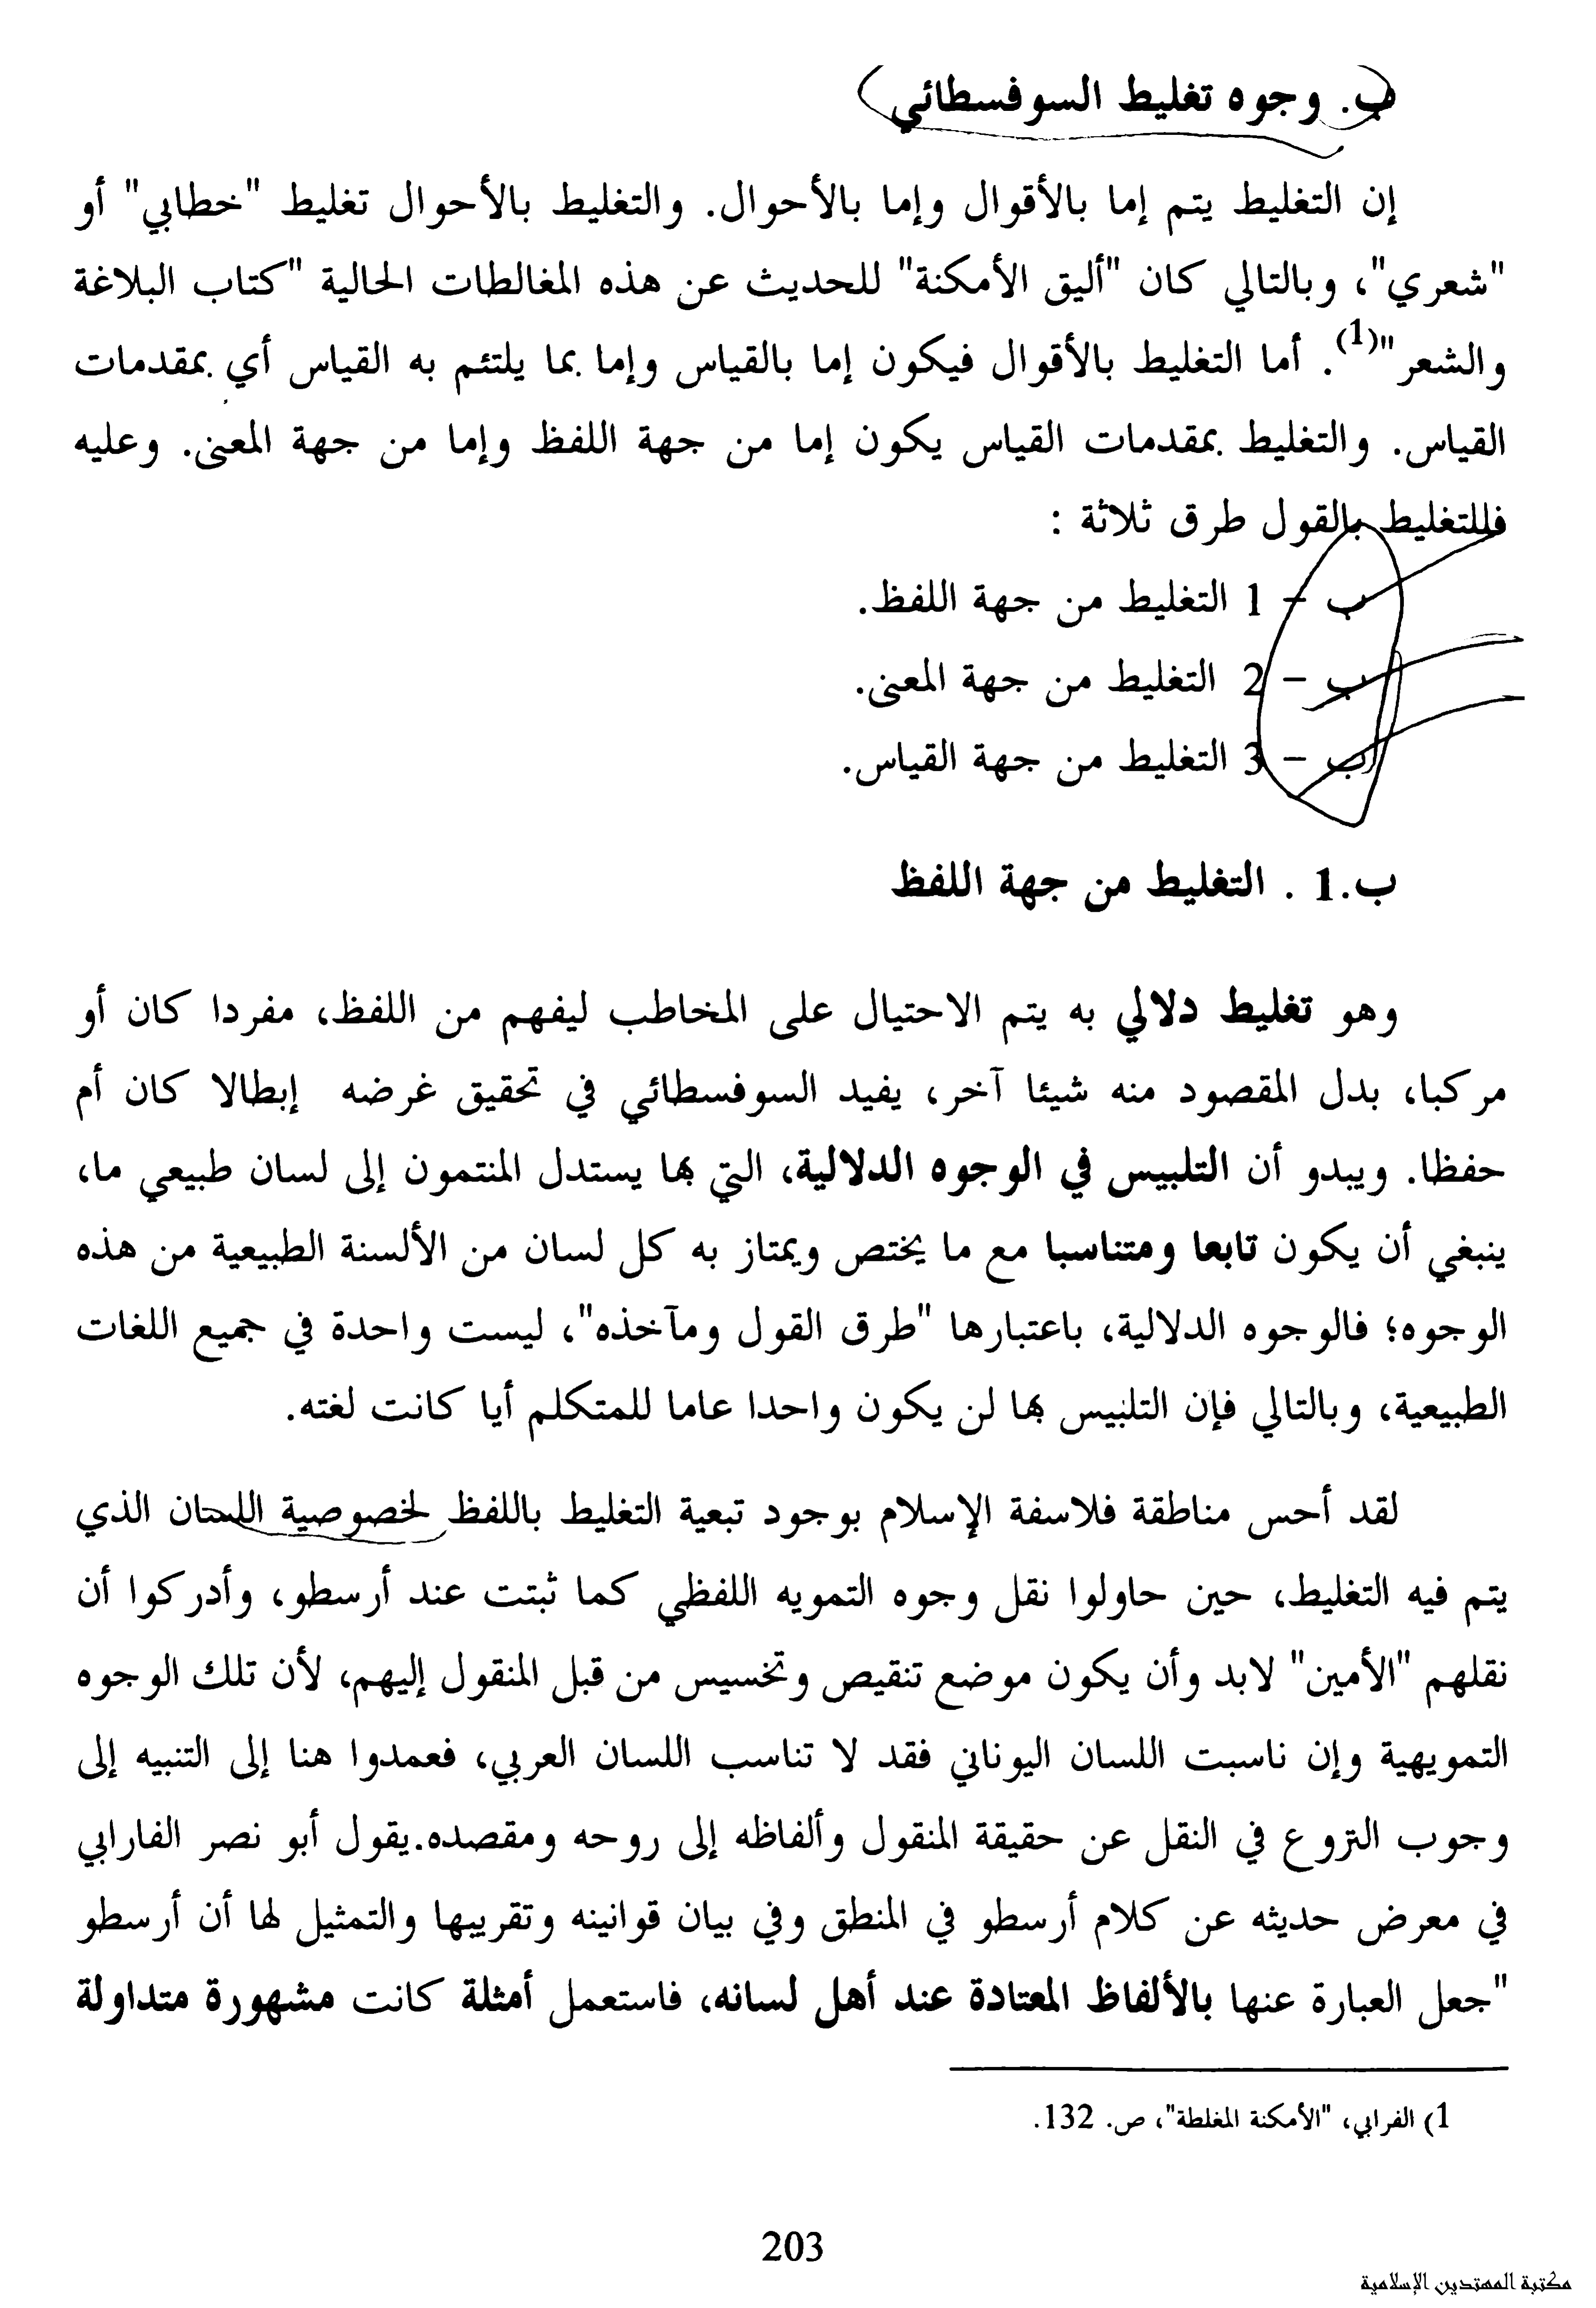 ب. وجوه تغليط السوفسطائي
إن التغليط يتم إما بالأقوال وإما بالأحوال. والتغليط بالأحوال تغليط "خطابي" أو
"شعري"، وبالتالي كان "أليق الأمكنة" للحديث عن هذه المغالطات الحالية "كتاب البلاغة
والشعر"(1). أما التغليط بالأقوال فيكون إما بالقياس وإما بما يلتئم به القياس أي بمقدمات
القياس. والتغليط بمقدمات القياس يكون إما من جهة اللفظ وإما من جهة المعنى. وعليه
فللتغليط بالقول طرق ثلاثة :
ب - 1 التغليط من جهة اللفظ.
ب - 2 التغليط من جهة المعنى.
ب - 3 التغليط من جهة القياس.
ب.1 . التغليط من جهة اللفظ
وهو تغليط دلالي به يتم الاحتيال على المخاطب ليفهم من اللفظ، مفردا كان أو
مركبا، بدل المقصود منه شيئا آخر، يفيد السوفسطائي في تحقيق غرضه إبطالا كان أم
حفظا. ويبدو أن التلبيس في الوجوه الدلالية، التي بها يستدل المنتمون إلى لسان طبيعي ما،
ينبغي أن يكون تابعا ومتناسبا مع ما يختص ويمتاز به كل لسان من الألسنة الطبيعية من هذه
الوجوه؛ فالوجوه الدلالية، باعتبارها "طرق القول ومآخذه"، ليست واحدة في جميع اللغات
الطبيعية، وبالتالي فإن التلبيس بها لن يكون واحدا عاما للمتكلم أيا كانت لغته.
لقد أحس مناطقة فلاسفة الإسلام بوجود تبعية التغليط باللفظ لخصوصية اللسان الذي
يتم فيه التغليط، حين حاولوا نقل وجوه التمويه اللفظي كما ثبتت عند أرسطو، وأدركوا أن
نقلهم "الأمين" لابد وأن يكون موضع تنقيص وتخسيس من قبل المنقول إليهم، لأن تلك الوجوه
التمويهية وإن ناسبت اللسان اليوناني فقد لا تناسب اللسان العربي، فعمدوا هنا إلى التنبيه إلى
وجوب النزوع في النقل عن حقيقة المنقول وألفاظه إلى روحه ومقصده.يقول أبو نصر الفارابي
في معرض حديثه عن كلام أرسطو في المنطق وفي بيان قوانينه وتقريبها والتمثيل لها أن أرسطو
"جعل العبارة عنها بالألفاظ المعتادة عند أهل لسانه، فاستعمل أمثلة كانت مشهورة متداولة
1) الفرابي، "الأمكنة المغلطة"، ص. 132.
203
مكتبة المهتدين الإسلامية